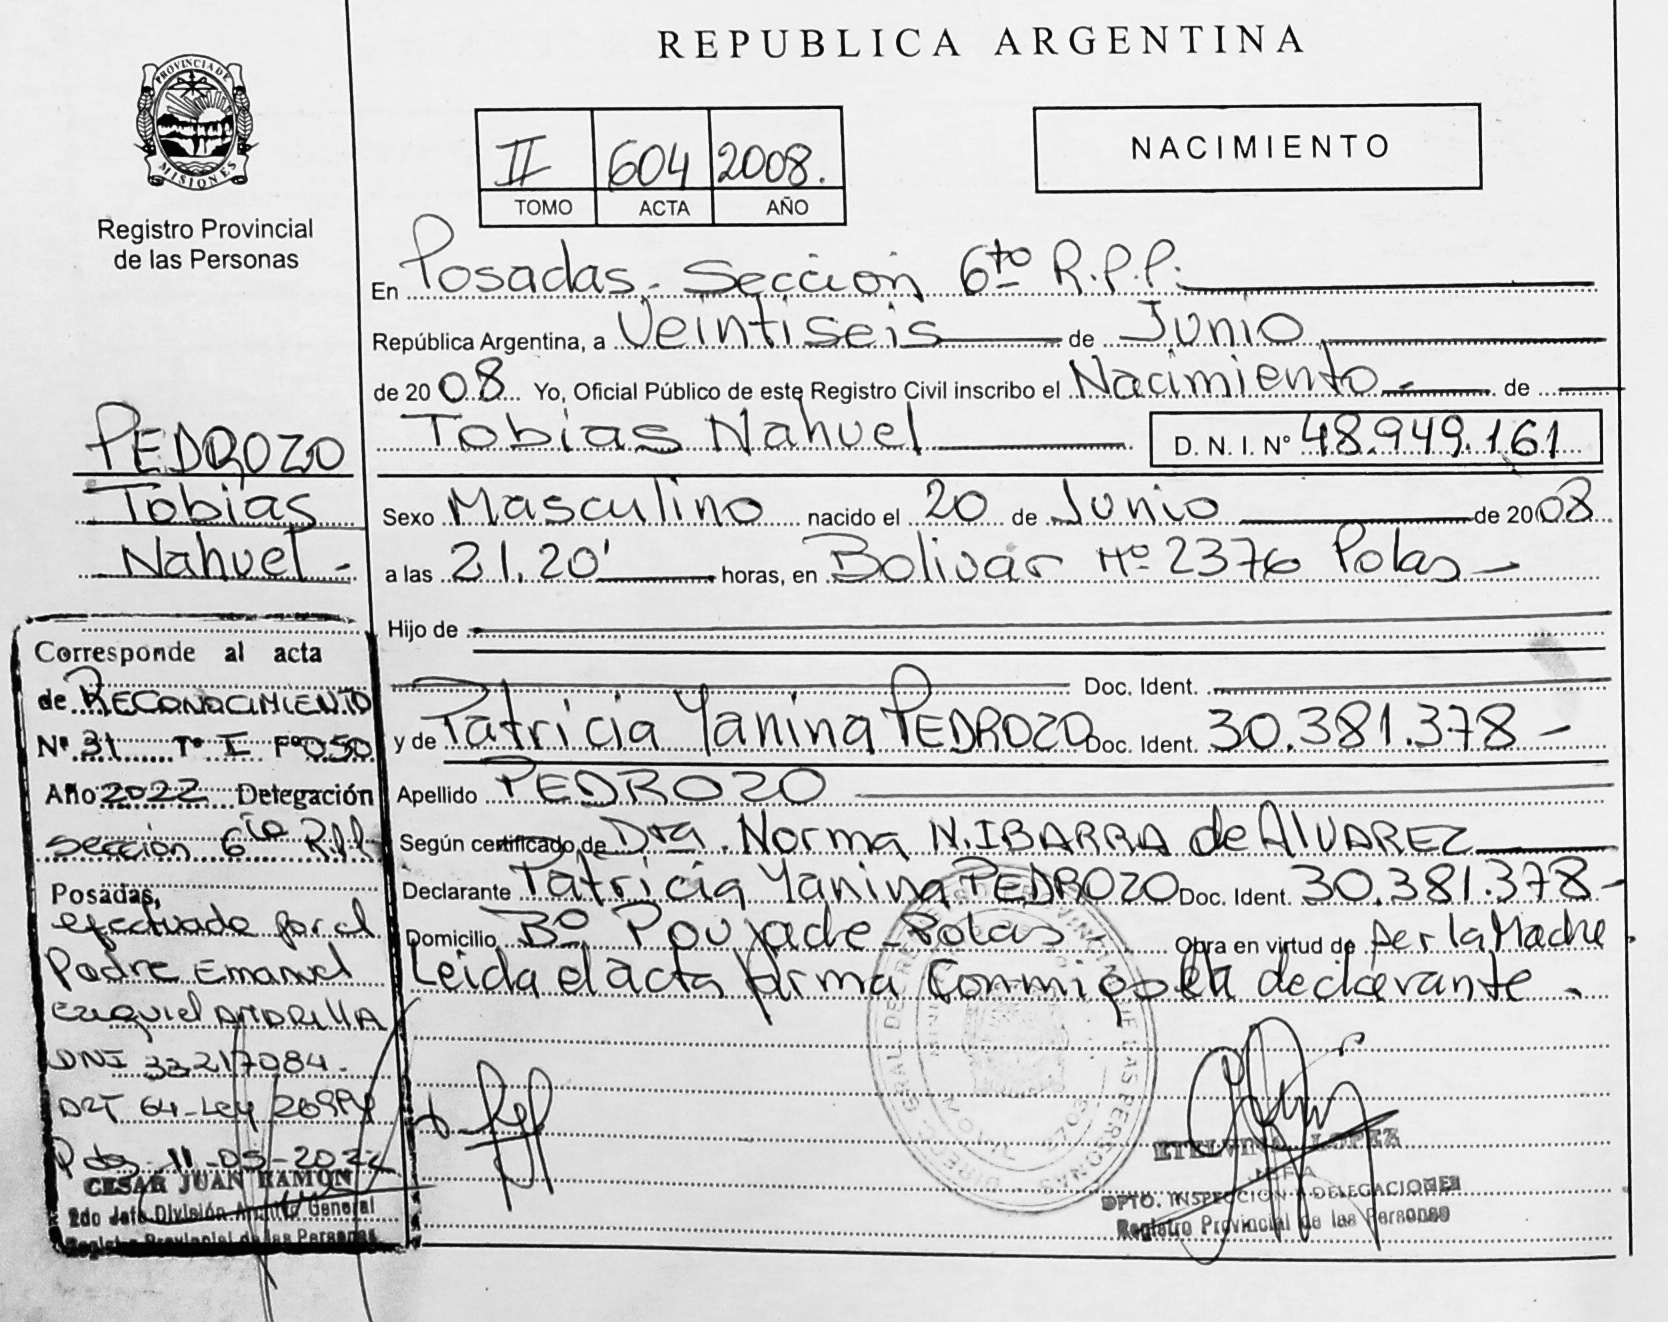 REPUBLICA ARGENTINA
PROVINCIA DE
MISIONES
Registro Provincial
de las Personas
II 604 2008.
TOMO ACTA AÑO
NACIMIENTO
En Posadas. Sección 6to R.P.P.
República Argentina, a Veintiseis de Junio
de 2008 Yo, Oficial Público de este Registro Civil inscribo el Nacimiento - de
Tobias Nahuel D. N. I. Nº 48.949.161
PEDROZO
Tobias
Nahuel -
Sexo Masculino nacido el 20 de Junio de 2008
a las 21.20' horas, en Bolivar Nº 2376 Pdas -
Hijo de
Doc. Ident.
y de Patricia Yanina PEDROZO Doc. Ident. 30.381.378 -
Apellido PEDROZO
Según certificado de Dra. Norma N. IBARRA de ALVAREZ
Declarante Patricia Yanina PEDROZO Doc. Ident. 30.381.378 -
Domicilio Bº Poujade - Pdas Obra en virtud de Ser la Madre
Leida el acta firma Conmigo la declarante .
Corresponde al acta
de RECONOCIMIENTO
Nº 31 Tº I Fº 050
Año 2022 Delegación
Sección 6to R.P.P.
Posadas,
efectuado por el
Padre Emanuel
Ezequiel
DNI 33217084.
ART 64 - Ley 26994
Pdas 11-05-2022
CESAR JUAN RAMON
2do Jefe División Archivo General
Registro Provincial de las Personas
ETELVINA LOPEZ
JEFA
DPTO. INSPECCION Y DELEGACIONES
Registro Provincial de las Personas